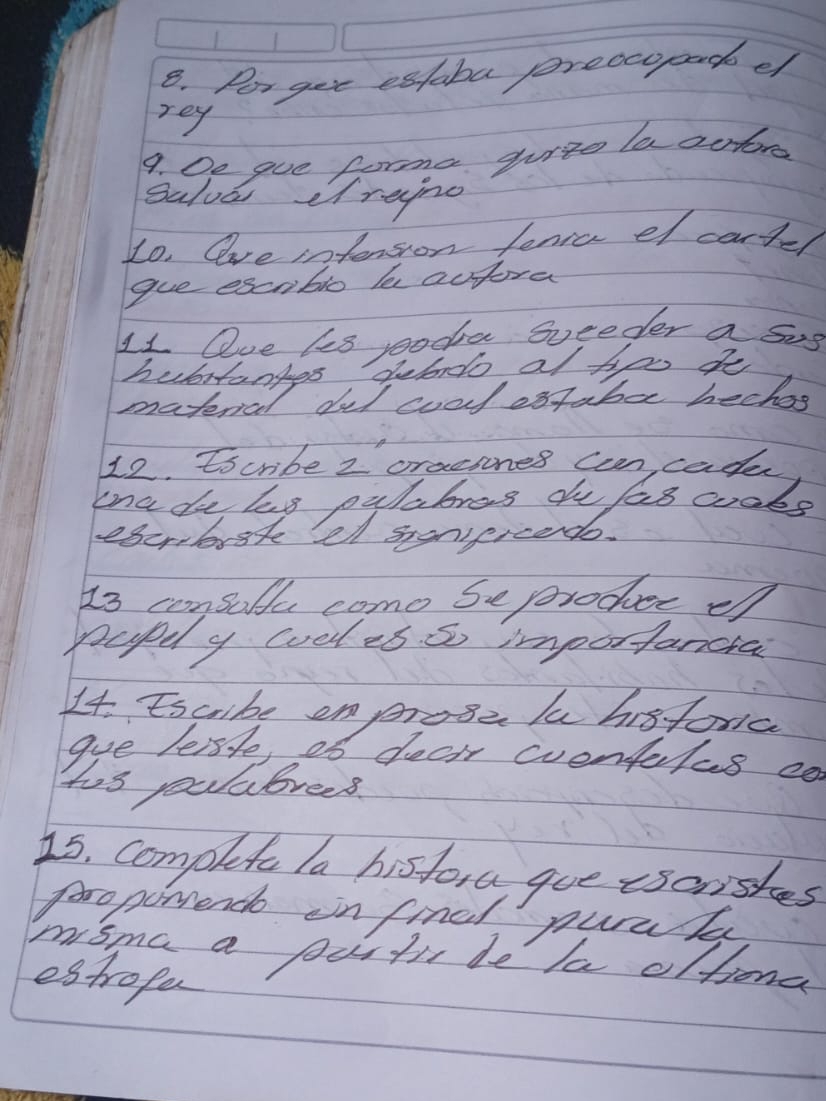 8. Por que estaba preocopado el
rey
9. De que forma quizo la autora
Salvar el reino
10. Que intension tenia el cartel
que escribio la autora
11. Que les podia suceder a sus
habitantes debido al tipo de
material del cual estaba hechos
12. Escribe 2 oraciones con cada
una de las palabras de las cuales
escribiste el significado.
13 consulta como se produce el
papel y cual es su importancia
14. Escribe en prosa la historia
que leiste, es decir cuentalas co
tus palabras
15. Completa la histora que escristes
proponiendo un final para la
misma a partir de la oltima
estrofa